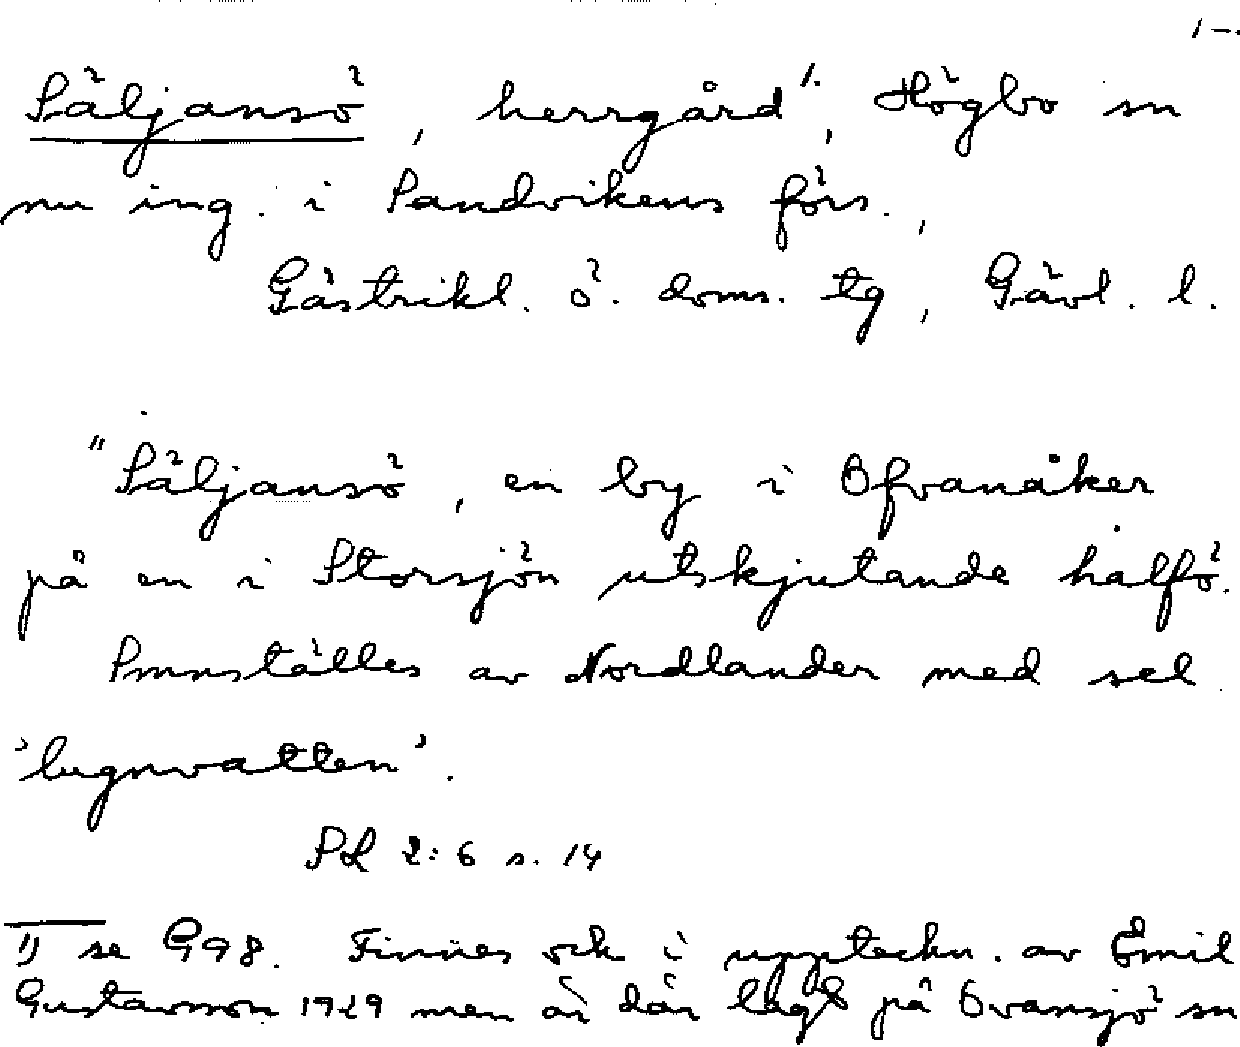 1–.
Säljansö, herrgård¹⁾, Högbo sn
nu ing. i Sandvikens förs.,
Gästrikl. ö. doms. tg, Gävl. l.
"Säljansö, en by i Ofvanåker
på en i Storsjön utskjutande halfö.
Smnställes av Nordlander med sel
'lugnvatten'.
SL 2:6 s. 14
1) se G98. Finnes ock i uppteckn. av Emil
Gustavsson 1929 men är där lagd på Ovansjö sn